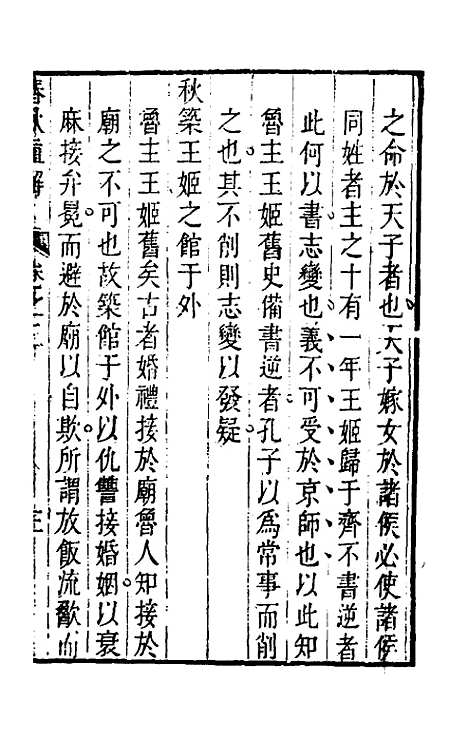 之命於天子者也天子嫁女於諸侯必使諸侯
同姓者主之十有一年王姬歸于齊不書逆者
此何以書志變也義不可受於京師也以此知
魯主王姬舊史備書逆者孔子以爲常事而削
之也其不削則志變以發疑
秋築王姬之館于外
魯主王姬舊矣古者婚禮接於廟魯人知接於
廟之不可也故築館于外以仇讐接婚姻以衰
麻接弁冕而避於廟以自欺所謂放飯流歠而